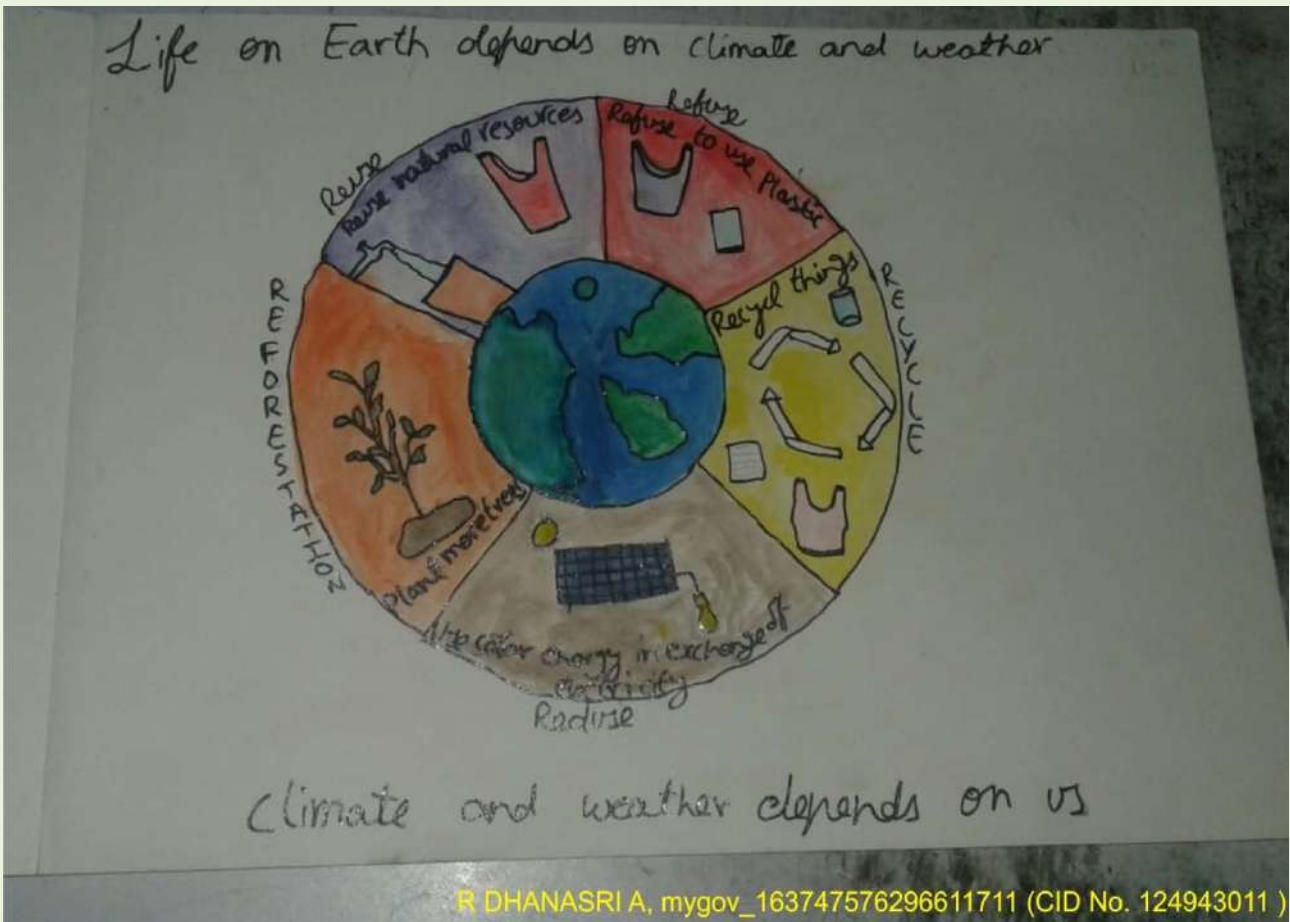 Life on Earth depends on climate and weather
Reuse
Reuse natural resources
Refuse
Refuse to use plastic
RECYCLE
Recycl things
REFORESTATION
plant more trees
energy in exchange of
electricity
Reduse
Climate and weather depends on us
R DHANASRI A, mygov_163747576296611711 (CID No. 124943011 )